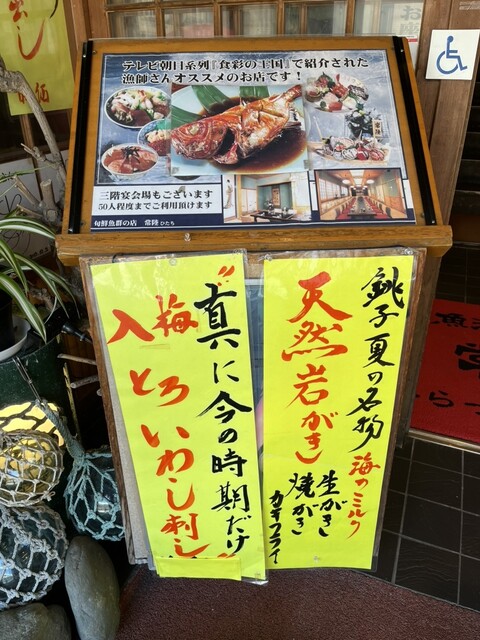 テレビ朝日系列『食彩の王国』で紹介された
漁師さんオススメのお店です！
三階宴会場もございます
50人程度までご利用頂けます
旬鮮魚群の店 常陸 ひたち
銚子夏の名物
海のミルク
天然岩がき
生がき
焼がき
カキフライ
"真に今の時期だけ"
入梅
とろいわし刺し